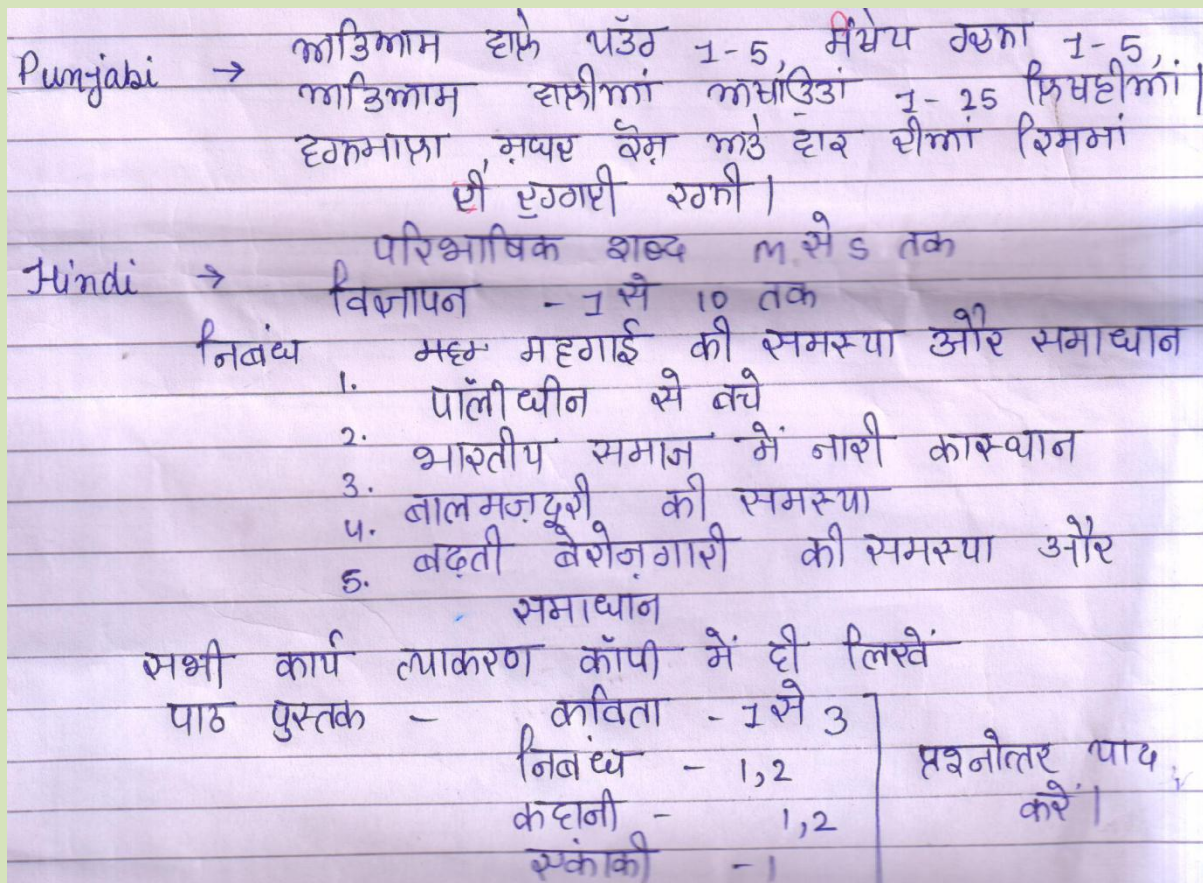 Punjabi → ਅਭਿਆਸ ਵਾਲੇ ਪੱਤਰ 1-5, ਸੰਖੇਪ ਰਚਨਾ 1-5,
ਅਭਿਆਸ ਵਾਲੀਆਂ ਅਖਾਉਤਾਂ 1-25 ਲਿਖਣੀਆਂ।
ਵਰਨਮਾਲਾ, ਸ਼ਬਦ ਅਤੇ ਵਾਕ ਦੀਆਂ ਕਿਸਮਾਂ
ਦੀ ਦੁਹਰਾਈ ਕਰਨੀ।
Hindi → परिभाषिक शब्द m से s तक
विज्ञापन - 1 से 10 तक
निबंध महगाई की समस्या और समाधान
1. पॉलीथीन से बचे
2. भारतीय समाज में नारी का स्थान
3. बालमज़दूरी की समस्या
4. बढ़ती बेरोज़गारी की समस्या और
5. समाधान
सभी कार्य व्याकरण कॉपी में ही लिखें
पाठ पुस्तक - कविता - 1 से 3
निबंध - 1,2 प्रश्नोत्तर याद
कहानी - 1,2 करें।
एकांकी - 1